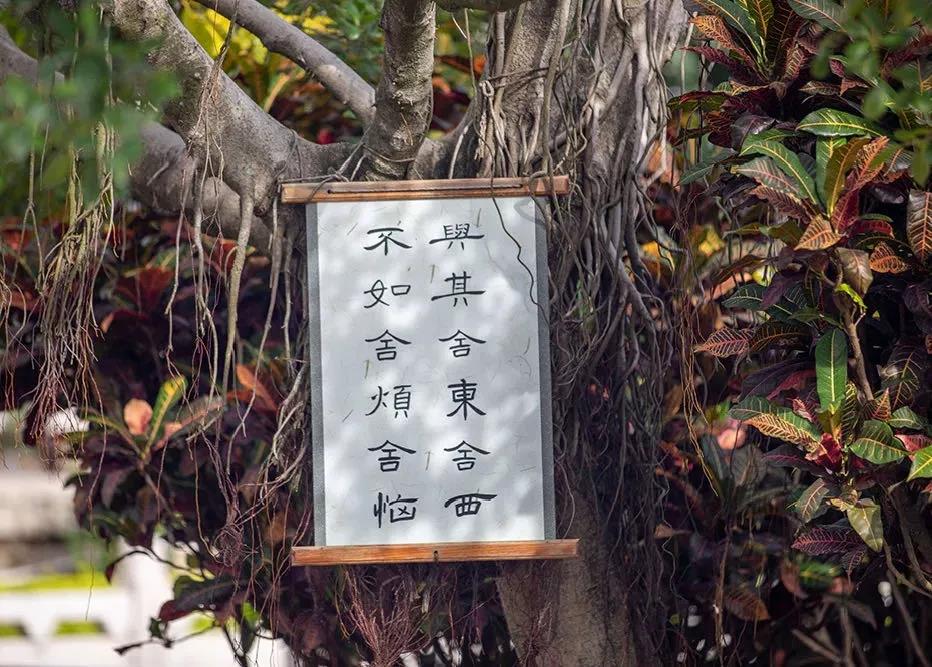 與其舍東舍西
不如舍煩舍惱